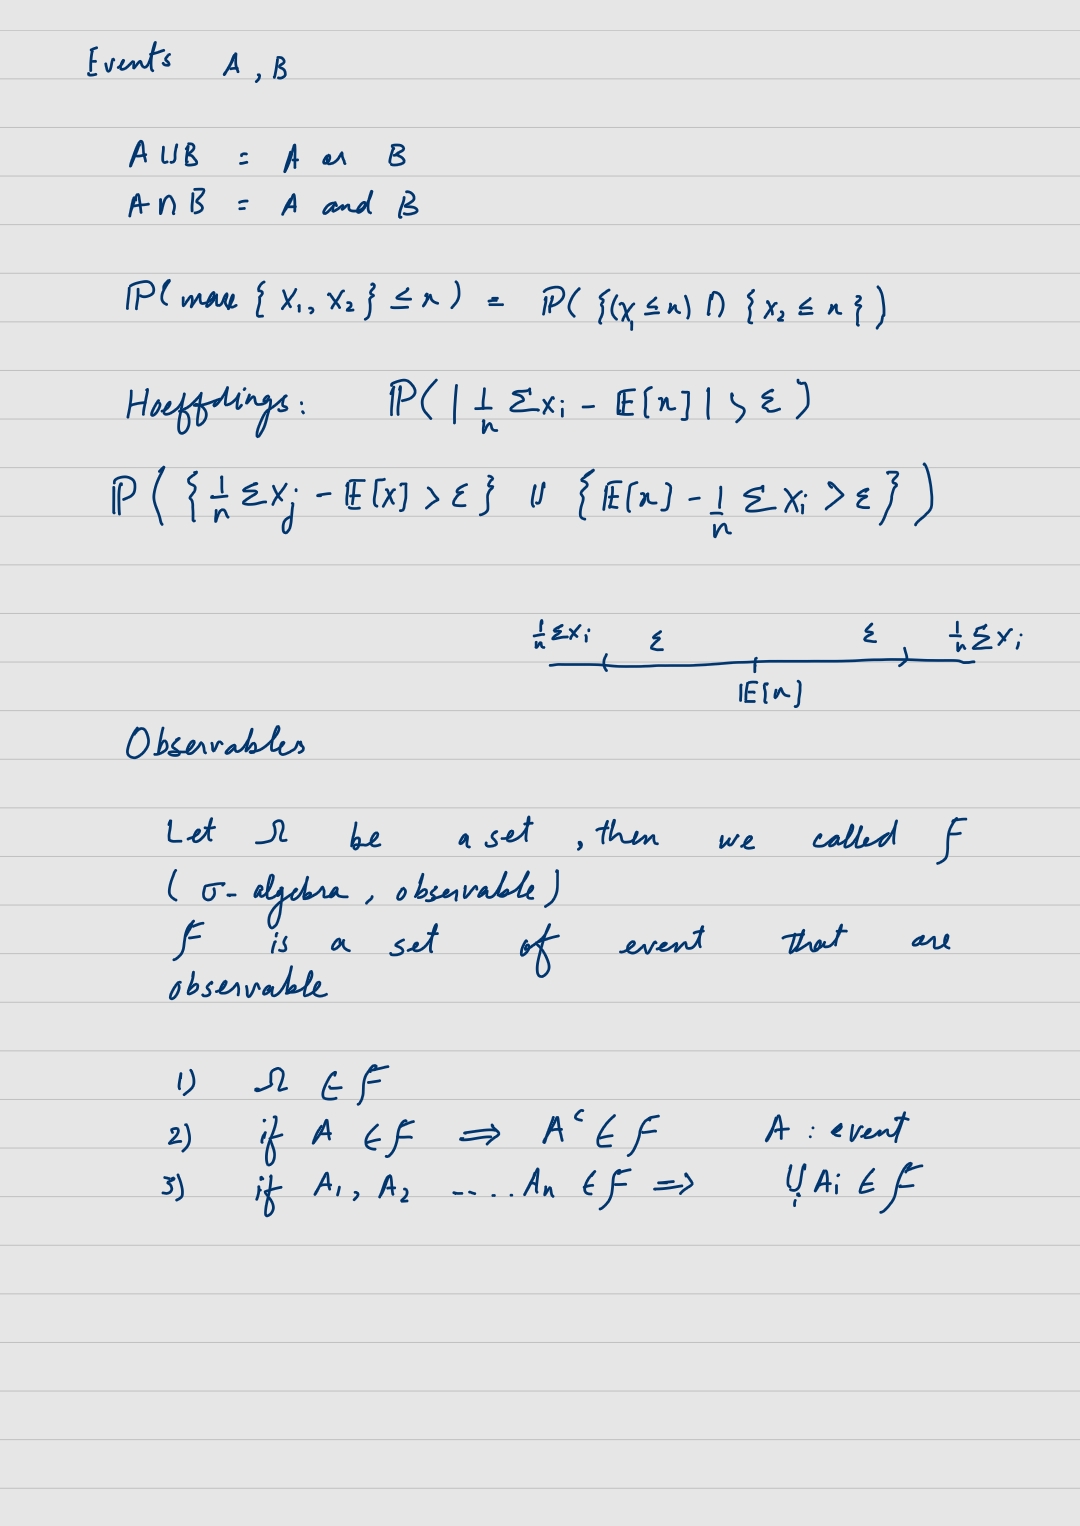 Events A, B
A ∪ B = A or B
A ∩ B = A and B
ℙ( max { X₁, X₂ } ≤ x ) = ℙ( {(X₁ ≤ x) ∩ { X₂ ≤ x } )
Hoeffdings: ℙ( | 1/n Σxᵢ - 𝔼[x] | > ε )
ℙ ( { 1/n ΣXⱼ - 𝔼[X] > ε } ∪ { 𝔼[x] - 1/n Σ Xᵢ > ε } )
1/n ΣXᵢ ε ε 1/n ΣXᵢ
𝔼[x]
Observables
Let Ω be a set , then we called F
( σ- algebra , observable )
F is a set of event that are
observable
1) Ω ∈ F
2) if A ∈ F ⟹ Aᶜ ∈ F A : event
3) if A₁, A₂ ...... Aₙ ∈ F ⟹ ∪ᵢ Aᵢ ∈ F